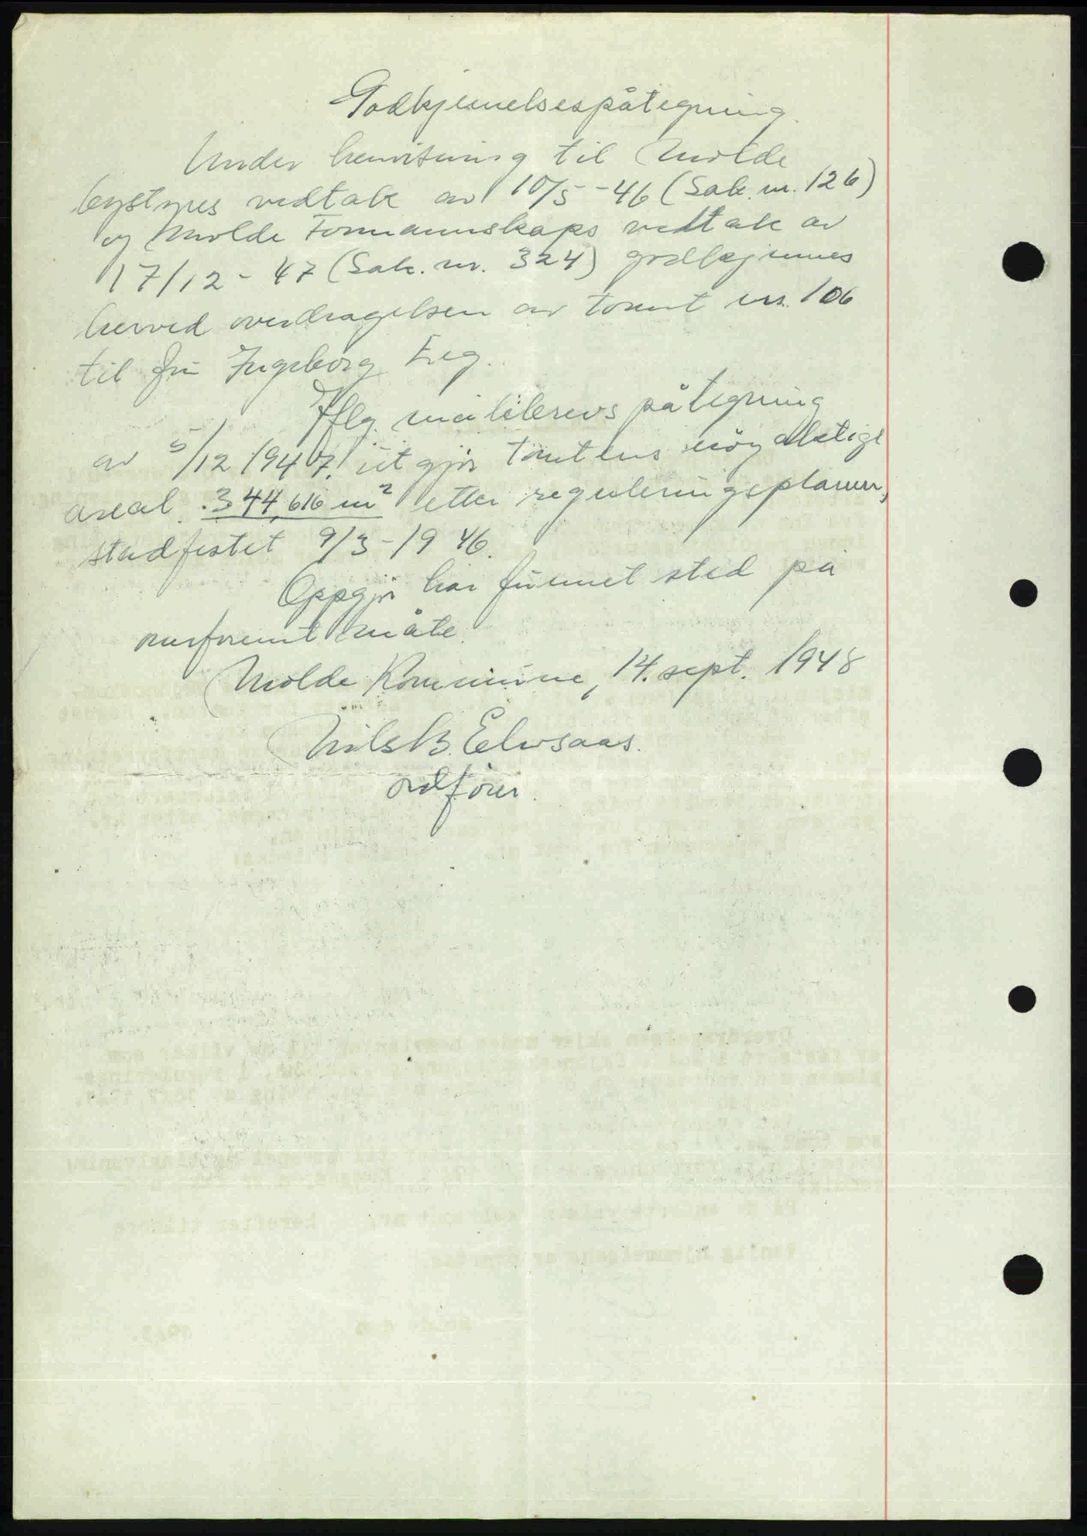 Godkjennelsespåtegning.
Under henvisning til Molde
bystyres vedtak av 10/5-46 (Sak. nr. 126)
og Molde Formannskaps vedtak av
17/12-47 (Sak. nr. 324) godkjennes
herved overdragelsen av tomt nr. 106
til fru Ingeborg Eeg.
Iflg. målebrevs påtegning
av 5/12 1947, utgjør tomtens nøyaktige
areal 344,616 m² etter reguleringsplanen,
stadfestet 9/3-1946.
Oppgjør har funnet sted på
omforent måte.
Molde Kommune, 14. sept. 1948
Nils B. Elvsaas.
ordfører.